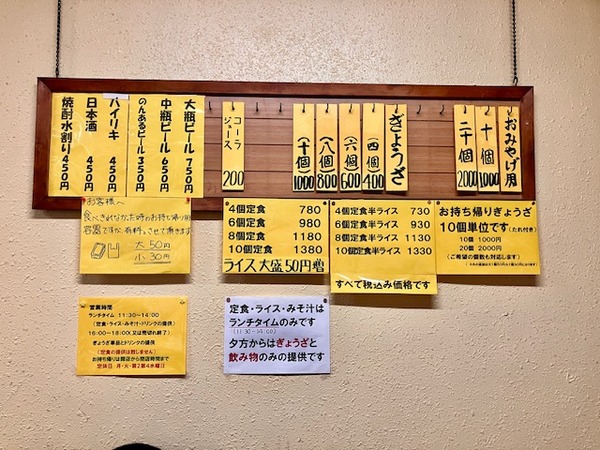 大瓶ビール 750円
中瓶ビール 650円
のんあるビール 350円
バイリキ 450円
日本酒 450円
焼酎水割り 450円
コーラ
ジュース 200
ぎょうざ
(四個) 400
(六個) 600
(八個) 800
(十個) 1000
おみやげ用
十個 1000
二十個 2000
お客様へ
食べきれなかった時のお持ち帰り用
容器ですが、有料とさせて頂きます
大 50円
小 30円
4個定食 780
6個定食 980
8個定食 1180
10個定食 1380
ライス大盛50円増
4個定食半ライス 730
6個定食半ライス 930
8個定食半ライス 1130
10個定食半ライス 1330
すべて税込み価格です
お持ち帰りぎょうざ
10個単位です(たれ付き)
10個 1000円
20個 2000円
(ご希望の個数も対応します)
営業時間
ランチタイム 11:30~14:00
(定食・ライス・みそ汁・ドリンクの提供)
16:00~18:00(又は売切れ終了)
ぎょうざ単品とドリンクの提供
(定食の提供は致しません)
お持ち帰りは開店から閉店時間まで
定休日 月・火・第2第4水曜日
定食・ライス・みそ汁は
ランチタイムのみです
(11:30~14:00)
夕方からはぎょうざと
飲み物のみの提供です